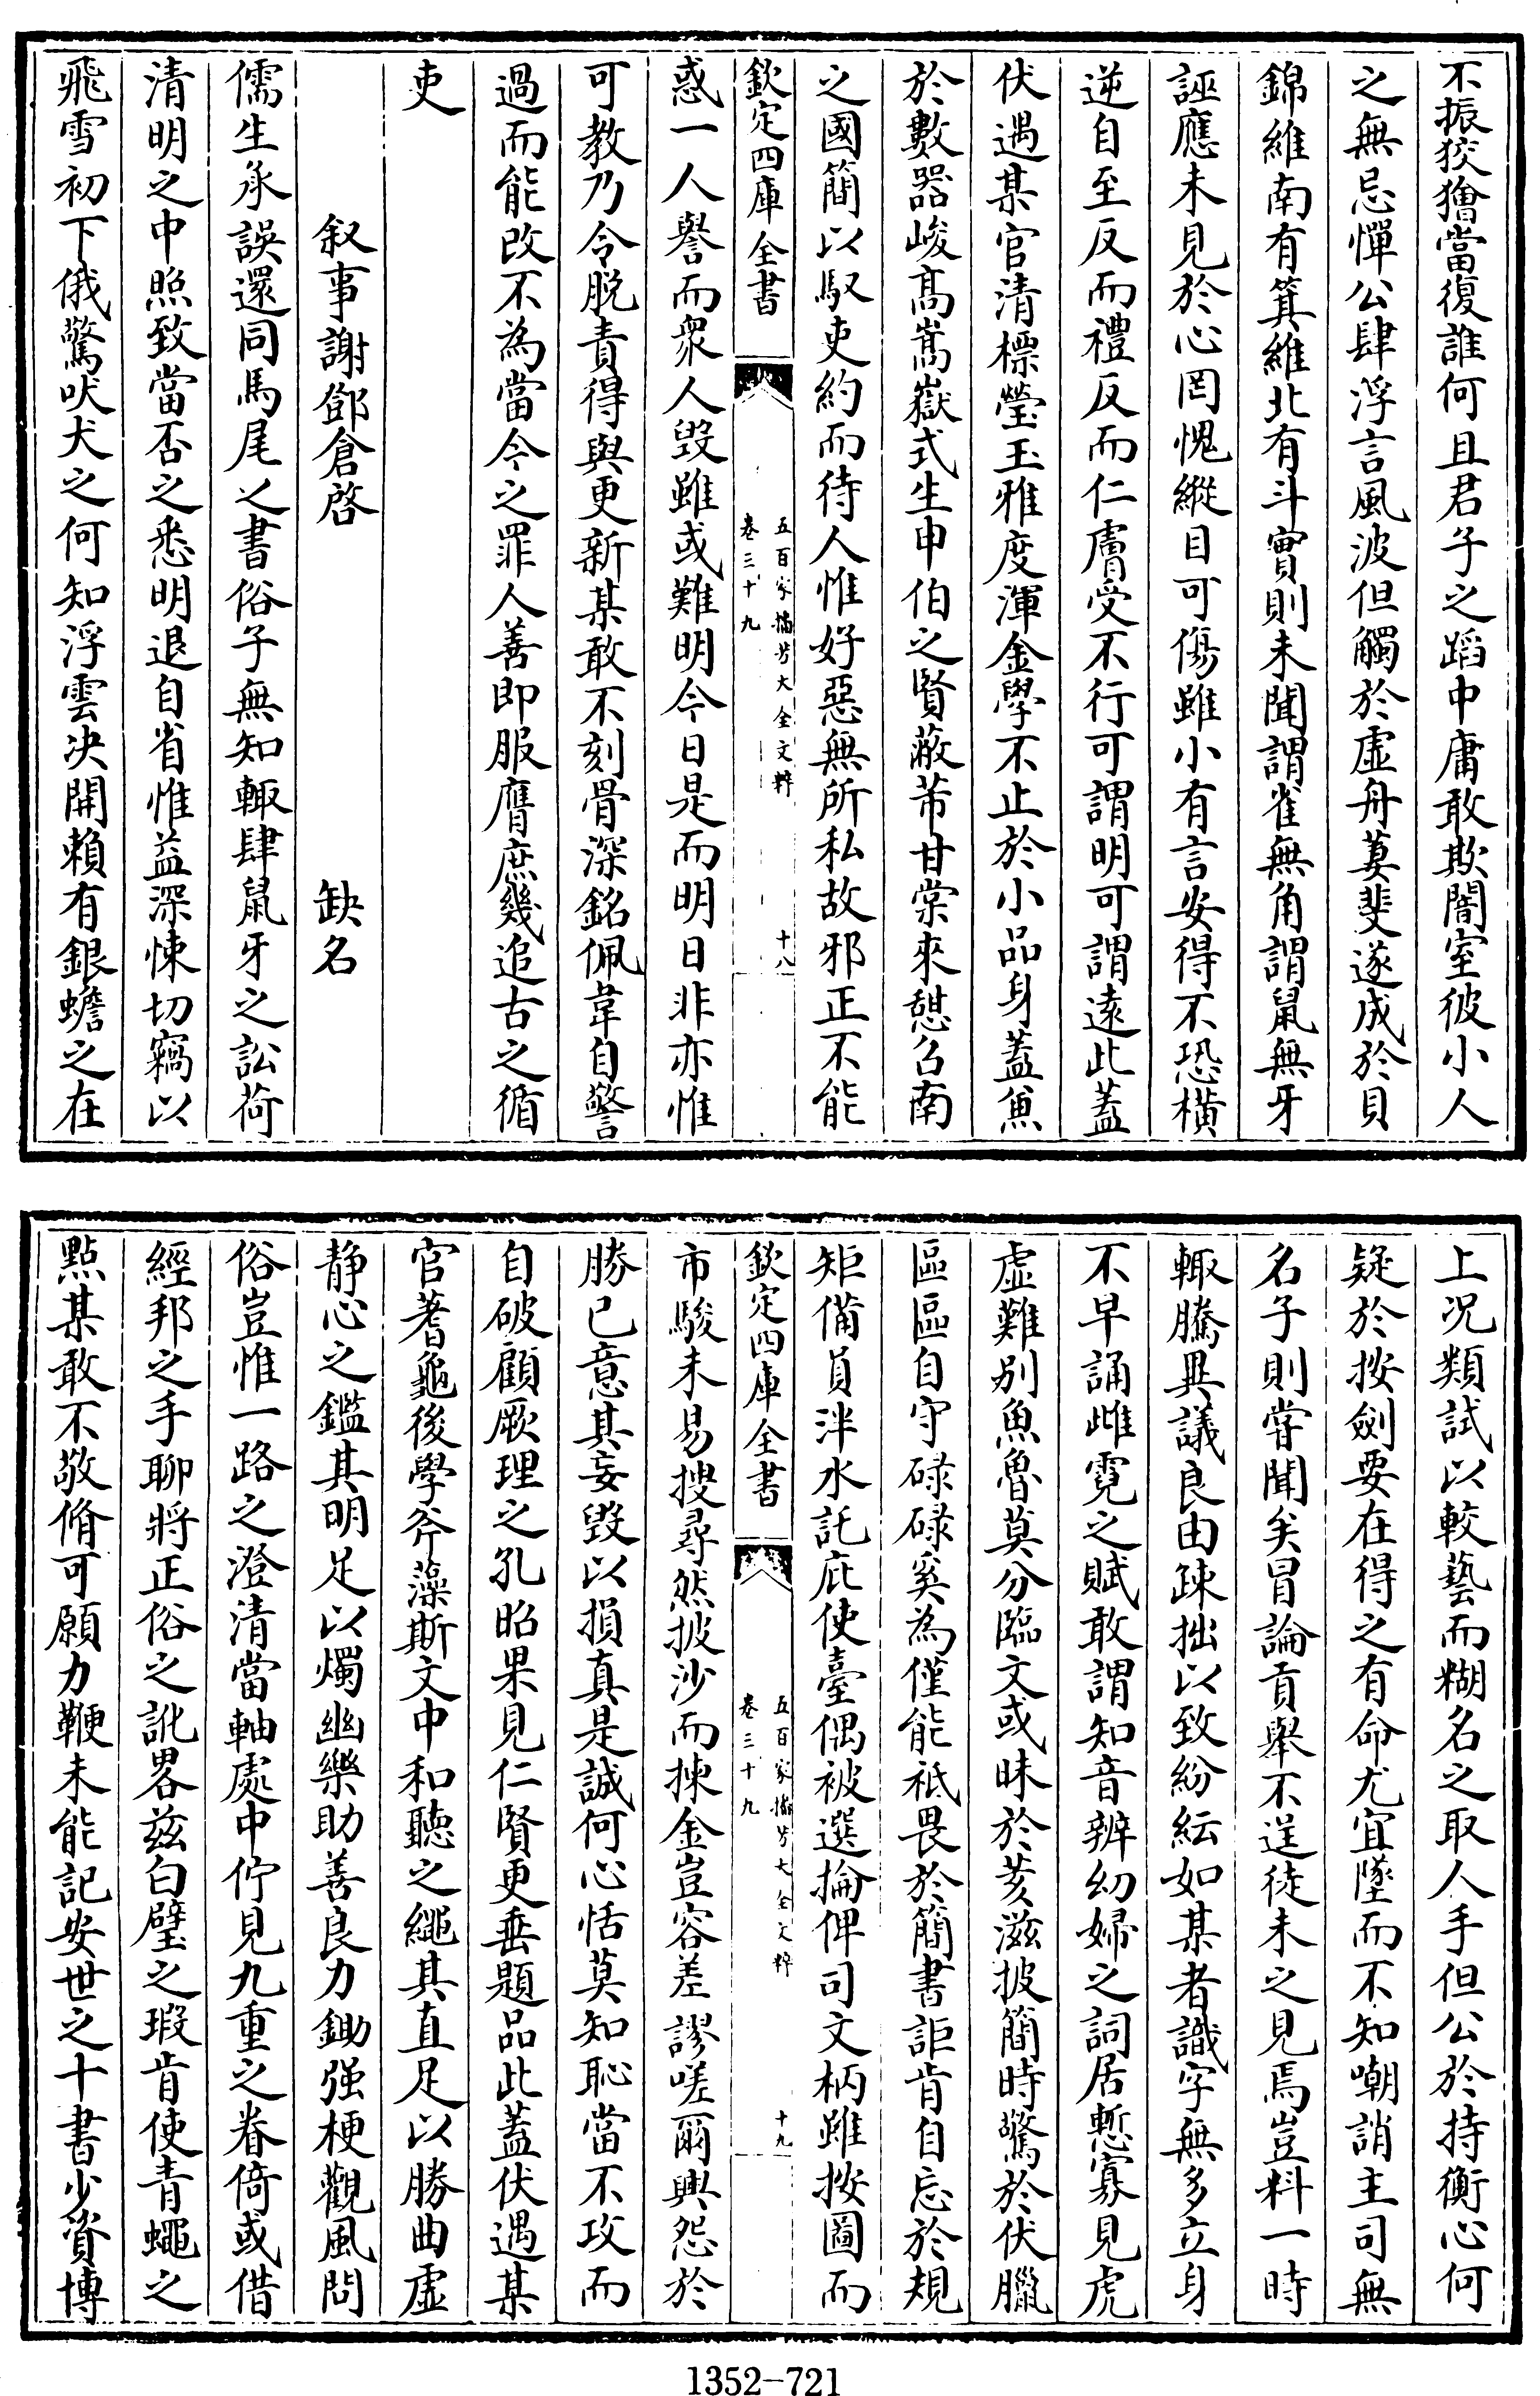 不振狡獪當復誰何且君子之蹈中庸敢欺闇室彼小人
之無忌憚公肆浮言風波但觸於虛舟萋斐遂成於貝
錦維南有箕維北有斗實則未聞謂雀無角謂鼠無牙
誣應未見於心罔愧縱目可傷雖小有言安得不恐橫
逆自至反而禮反而仁膚受不行可謂明可謂遠此蓋
伏遇某官清標瑩玉雅度渾金學不止於小品身蓋兼
於數器峻高嵩嶽式生申伯之賢蔽芾甘棠來憩召南
之國簡以馭吏約而待人惟好惡無所私故邪正不能
欽定四庫全書
五百家播芳大全文粹
卷三十九
十八
惑一人譽而衆人毁雖或難明今日是而明日非亦惟
可教乃令脱責得與更新某敢不刻骨深銘佩韋自警
過而能改不為當今之罪人善即服膺庶幾追古之循
吏
叙事謝鄧倉啓 缺名
儒生承誤還同馬尾之書俗子無知輙肆鼠牙之訟荷
清明之中照致當否之悉明退自省惟益深悚切竊以
飛雪初下俄驚吠犬之何知浮雲决開賴有銀蟾之在
上况類試以較藝而糊名之取人手但公於持衡心何
疑於按劍要在得之有命尤宜墜而不知嘲誚主司無
名子則嘗聞矣冒論貢舉不逞徒未之見焉豈料一時
輙騰異議良由疎拙以致紛紜如某者識字無多立身
不早誦雌霓之賦敢謂知音辨幼婦之詞居慙寡見虎
虛難别魚魯莫分臨文或昧於亥滋披簡時驚於伏臘
區區自守碌碌奚為僅能祗畏於簡書詎肯自忘於規
矩備員泮水託庇使臺偶被選掄俾司文柄雖按圖而
欽定四庫全書
五百家播芳大全文粹
卷三十九
十九
市駿未易搜尋然披沙而揀金豈容差謬嗟爾輿怨於
勝已意其妄毁以損真是誠何心恬莫知恥當不攻而
自破顧厥理之孔昭果見仁賢更垂題品此蓋伏遇某
官蓍龜後學斧藻斯文中和聽之繩其直足以勝曲虛
静心之鑑其明足以燭幽樂助善良力鋤强梗觀風問
俗豈惟一路之澄清當軸處中佇見九重之眷倚或借
經邦之手聊將正俗之訛畧兹白璧之瑕肯使青蠅之
點某敢不敬脩可願力鞭未能記安世之十書少資博
1352-721